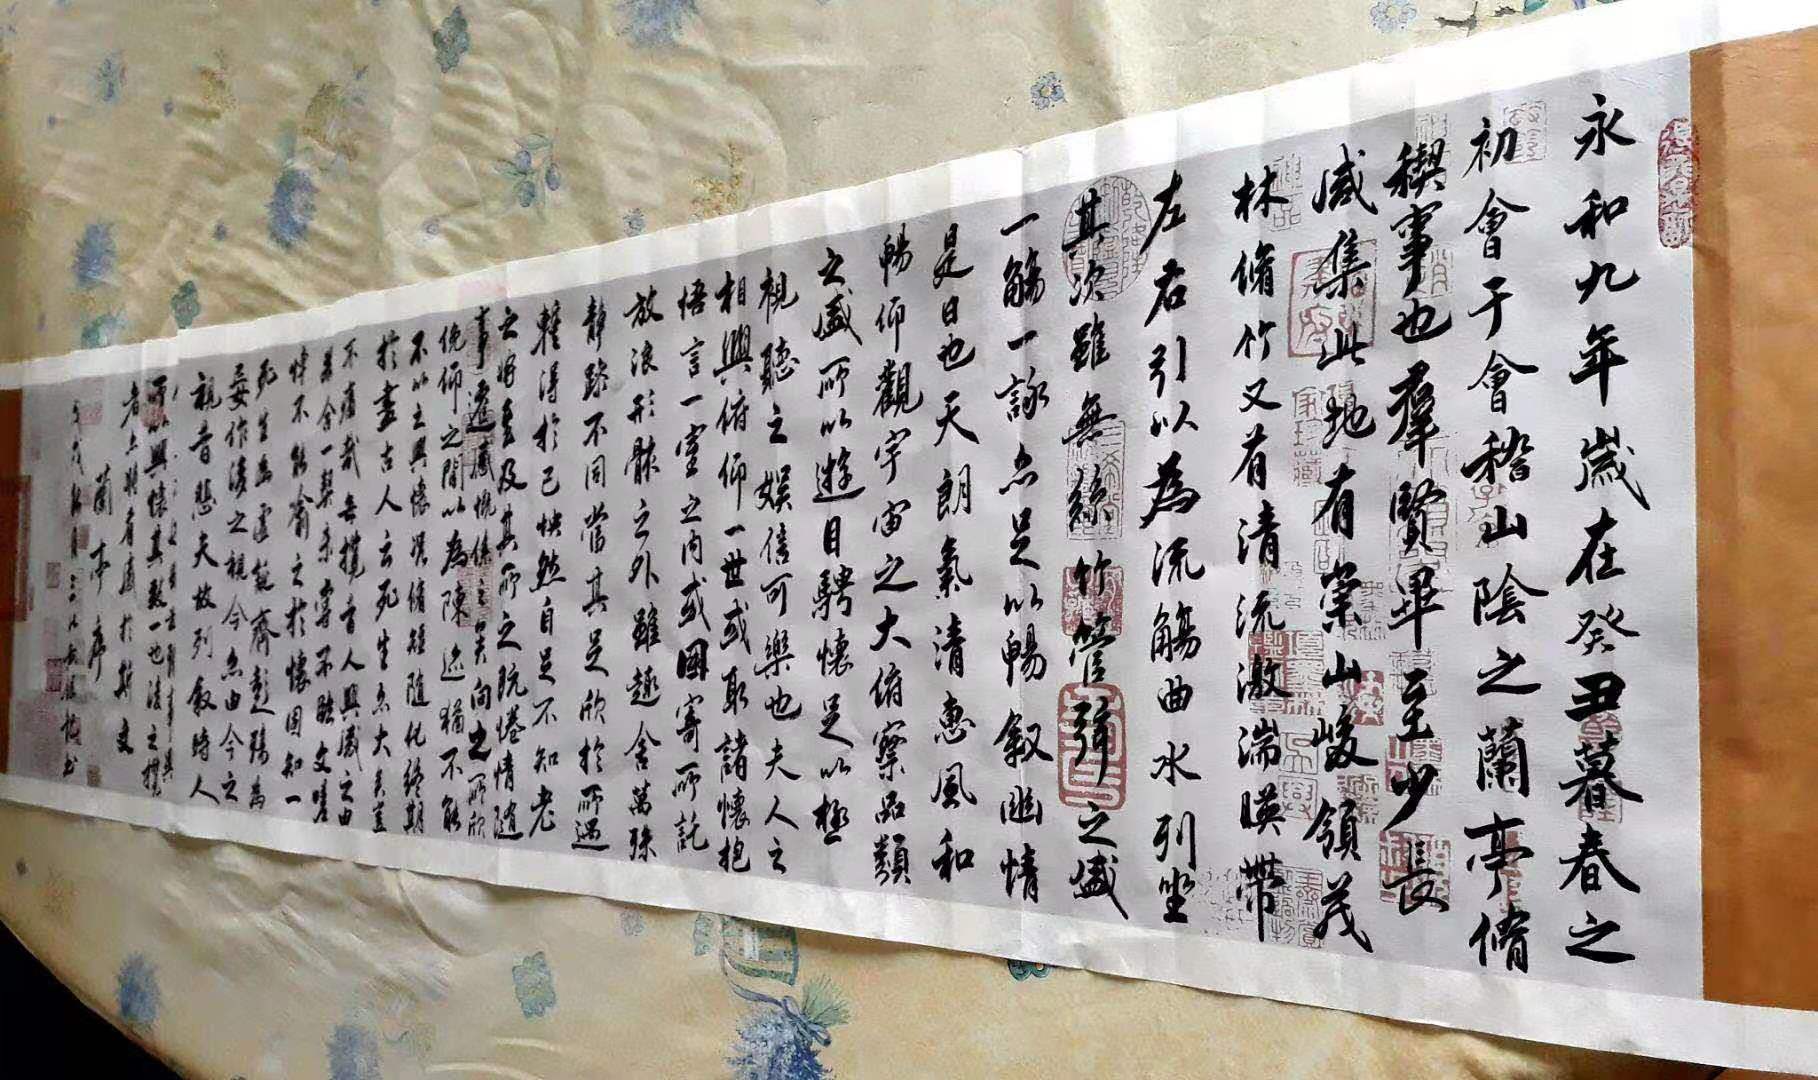 永和九年歲在癸丑暮春之
初會于會稽山陰之蘭亭脩
稧事也羣賢畢至少長
咸集此地有崇山峻領茂
林脩竹又有清流激湍暎帶
左右引以為流觴曲水列坐
其次雖無絲竹管弦之盛
一觴一詠亦足以暢叙幽情
是日也天朗氣清惠風和
暢仰觀宇宙之大俯察品類
之盛所以遊目騁懷足以極
視聽之娛信可樂也夫人之
相與俯仰一世或取諸懷抱
悟言一室之內或因寄所託
放浪形骸之外雖趣舍萬殊
靜躁不同當其欣於所遇
輊得於己怏然自足不知老
之將至及其所之既惓情隨
事遷感慨係之矣向之所欣
俛仰之閒以為陳迹猶不能
不以之興懷況脩短隨化終期
於盡古人云死生亦大矣豈
不痛哉每攬昔人興感之由
若合一契未嘗不臨文嗟
悼不能喻之於懷固知一
死生為虛誕齊彭殤為
妄作後之視今亦由今之
視昔悲夫故列叙時人
所以興懷其致一也後之攬
者亦將有感於斯文
蘭亭序